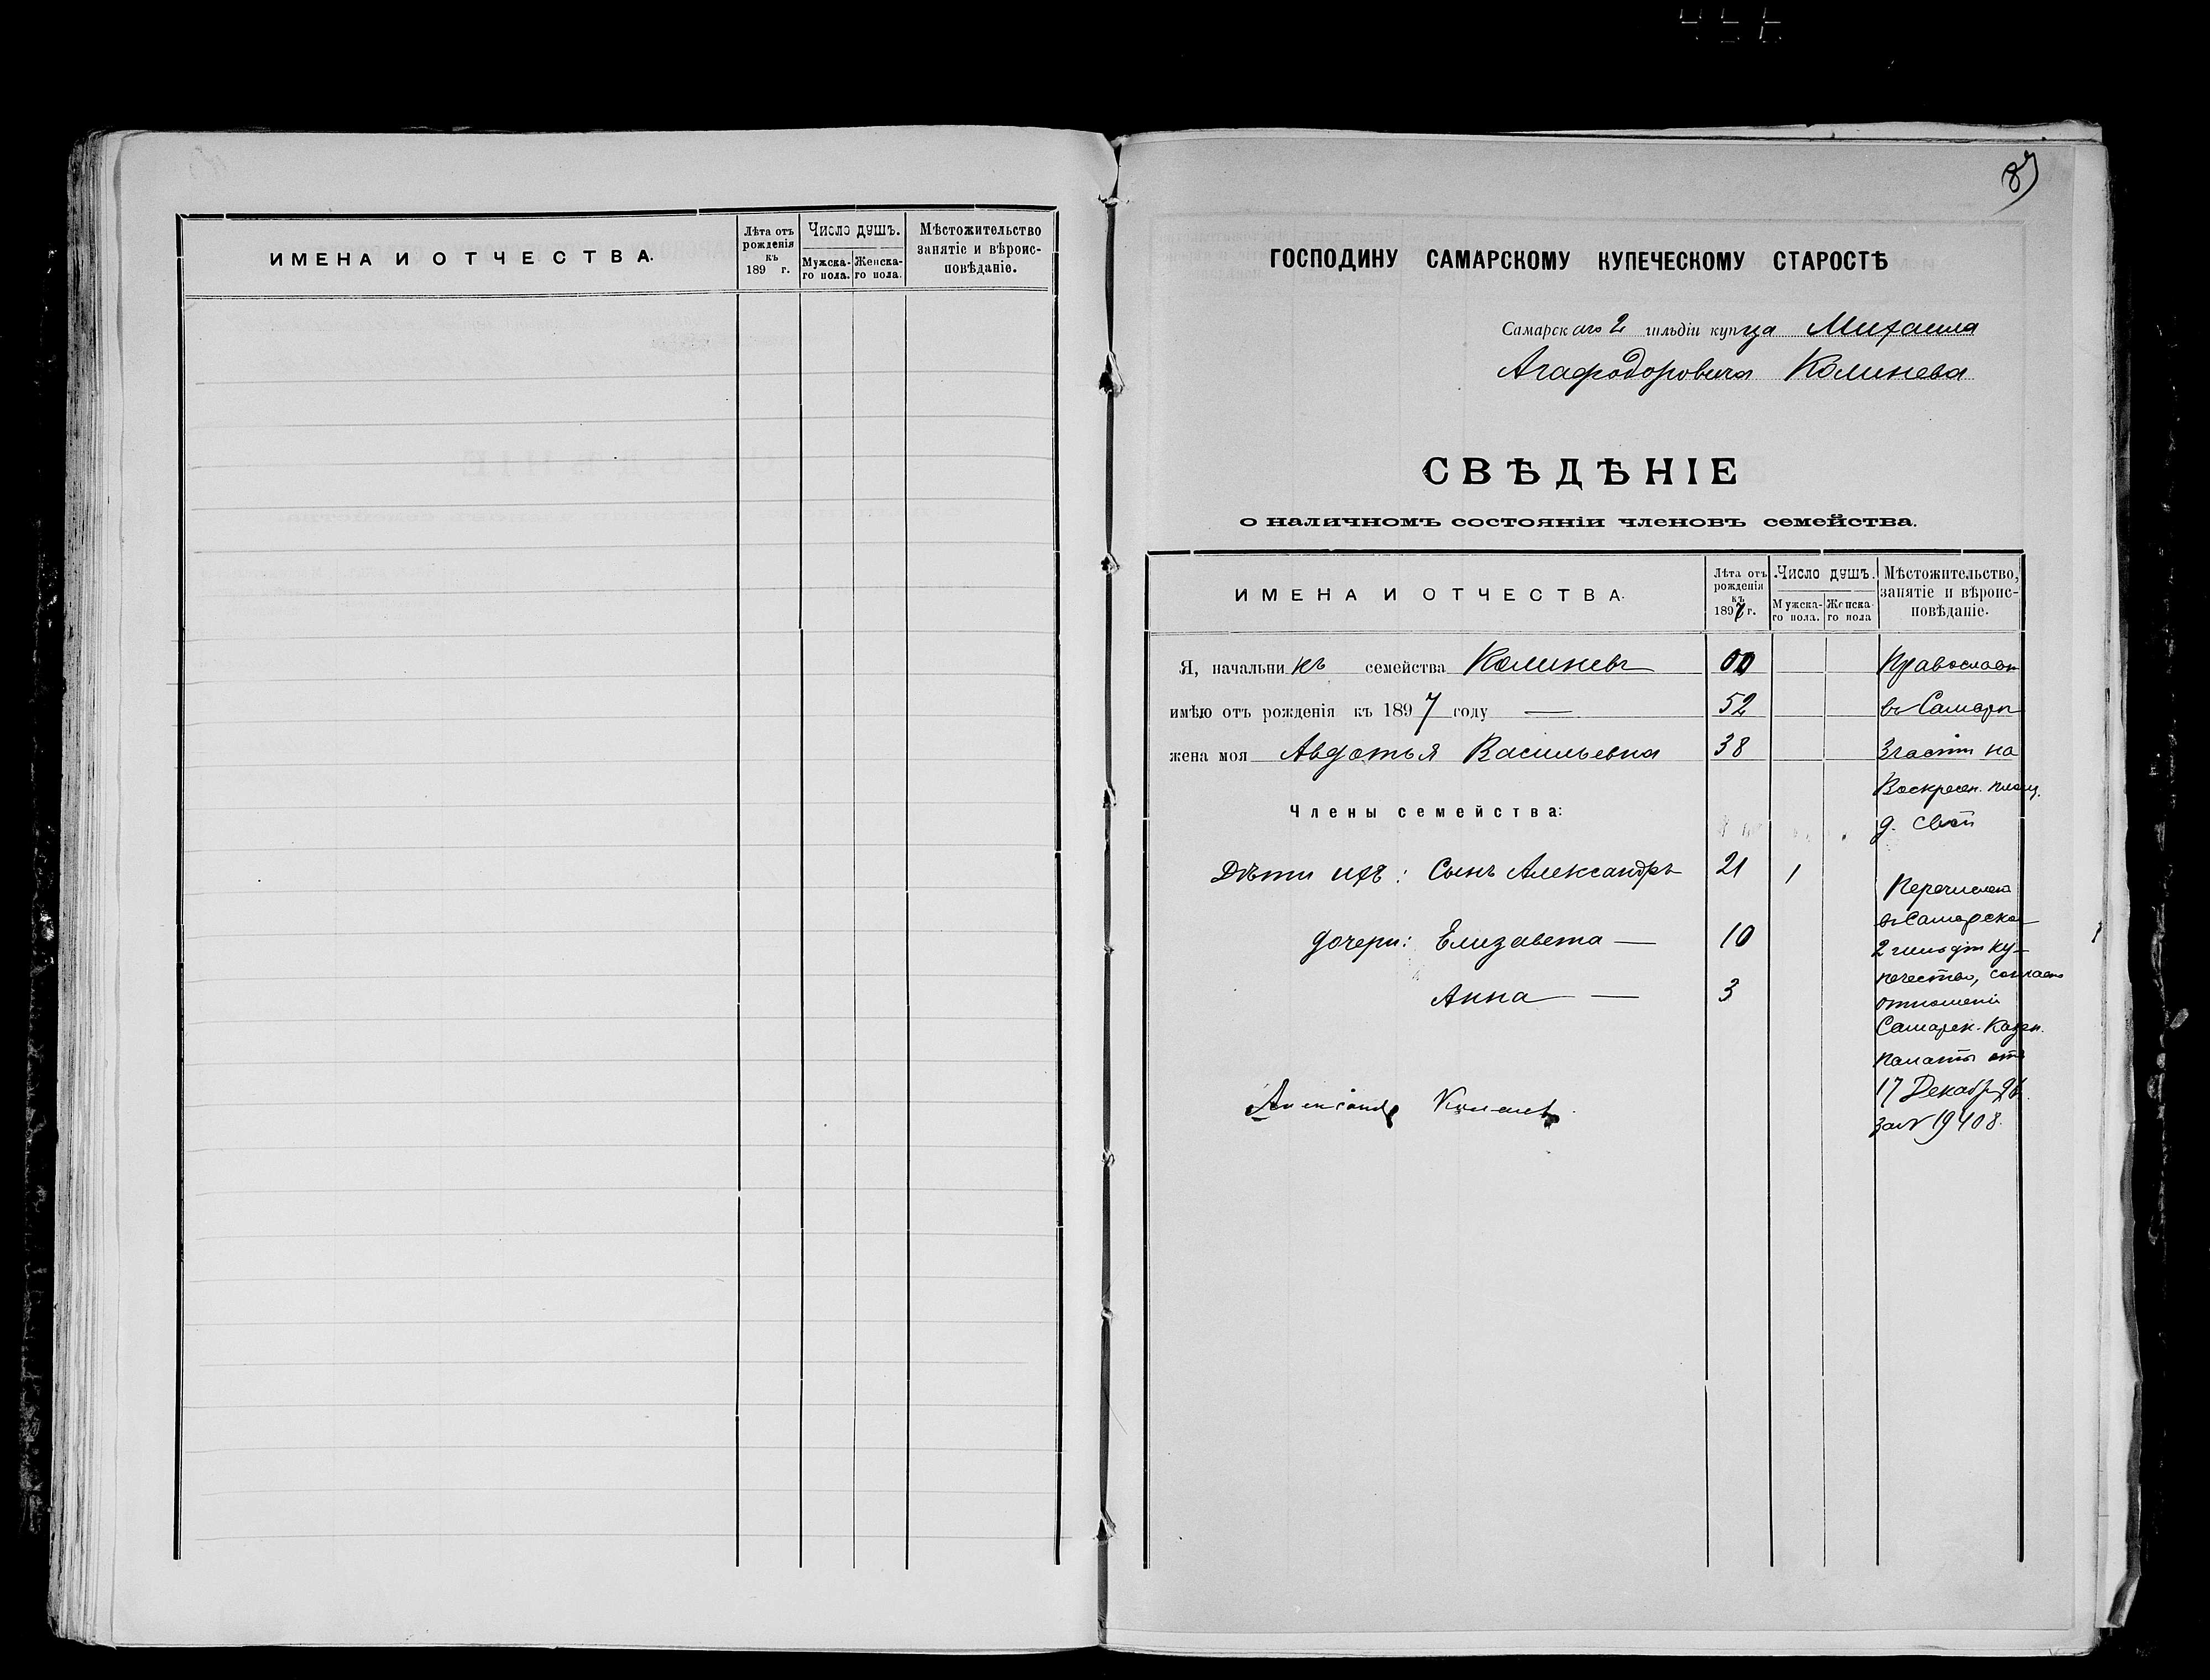 ИМЕНА И ОТЧЕСТВА.
Лѣта отъ рожденія къ 189 г.
Число душъ.
Мужска-го пола.
Женска-го пола.
Мѣстожительство занятіе и вѣроис-повѣданіе.
87
ГОСПОДИНУ САМАРСКОМУ КУПЕЧЕСКОМУ СТАРОСТѢ
Самарскаго 2 гильдіи купца Михаила
Агафодоровича Колинева
СВѢДѢНІЕ
о наличномъ состояніи членовъ семейства.
ИМЕНА И ОТЧЕСТВА.
Лѣта отъ рожденія къ 1897 г.
Число душъ.
Мужска-го пола.
Женска-го пола
Мѣстожительство, занятіе и вѣроис-повѣданіе.
Я, начальникъ семейства Колиневъ 00 Православн
имѣю отъ рожденія къ 1897 году — 52 въ Самарѣ
жена моя Авдотья Васильевна 38 3 части на
Воскресен. площ.
Члены семейства:
д. свой
Дѣти ихъ: Сынъ Александръ 21 1
Перечислены
въ Самарское
дочери: Елизавета — 10
2 гильдіи ку-
печество, согласно
Анна — 3
отношенію
Самарск. Казен.
палаты отъ
17 Декабря 96
Александръ
за № 19408.